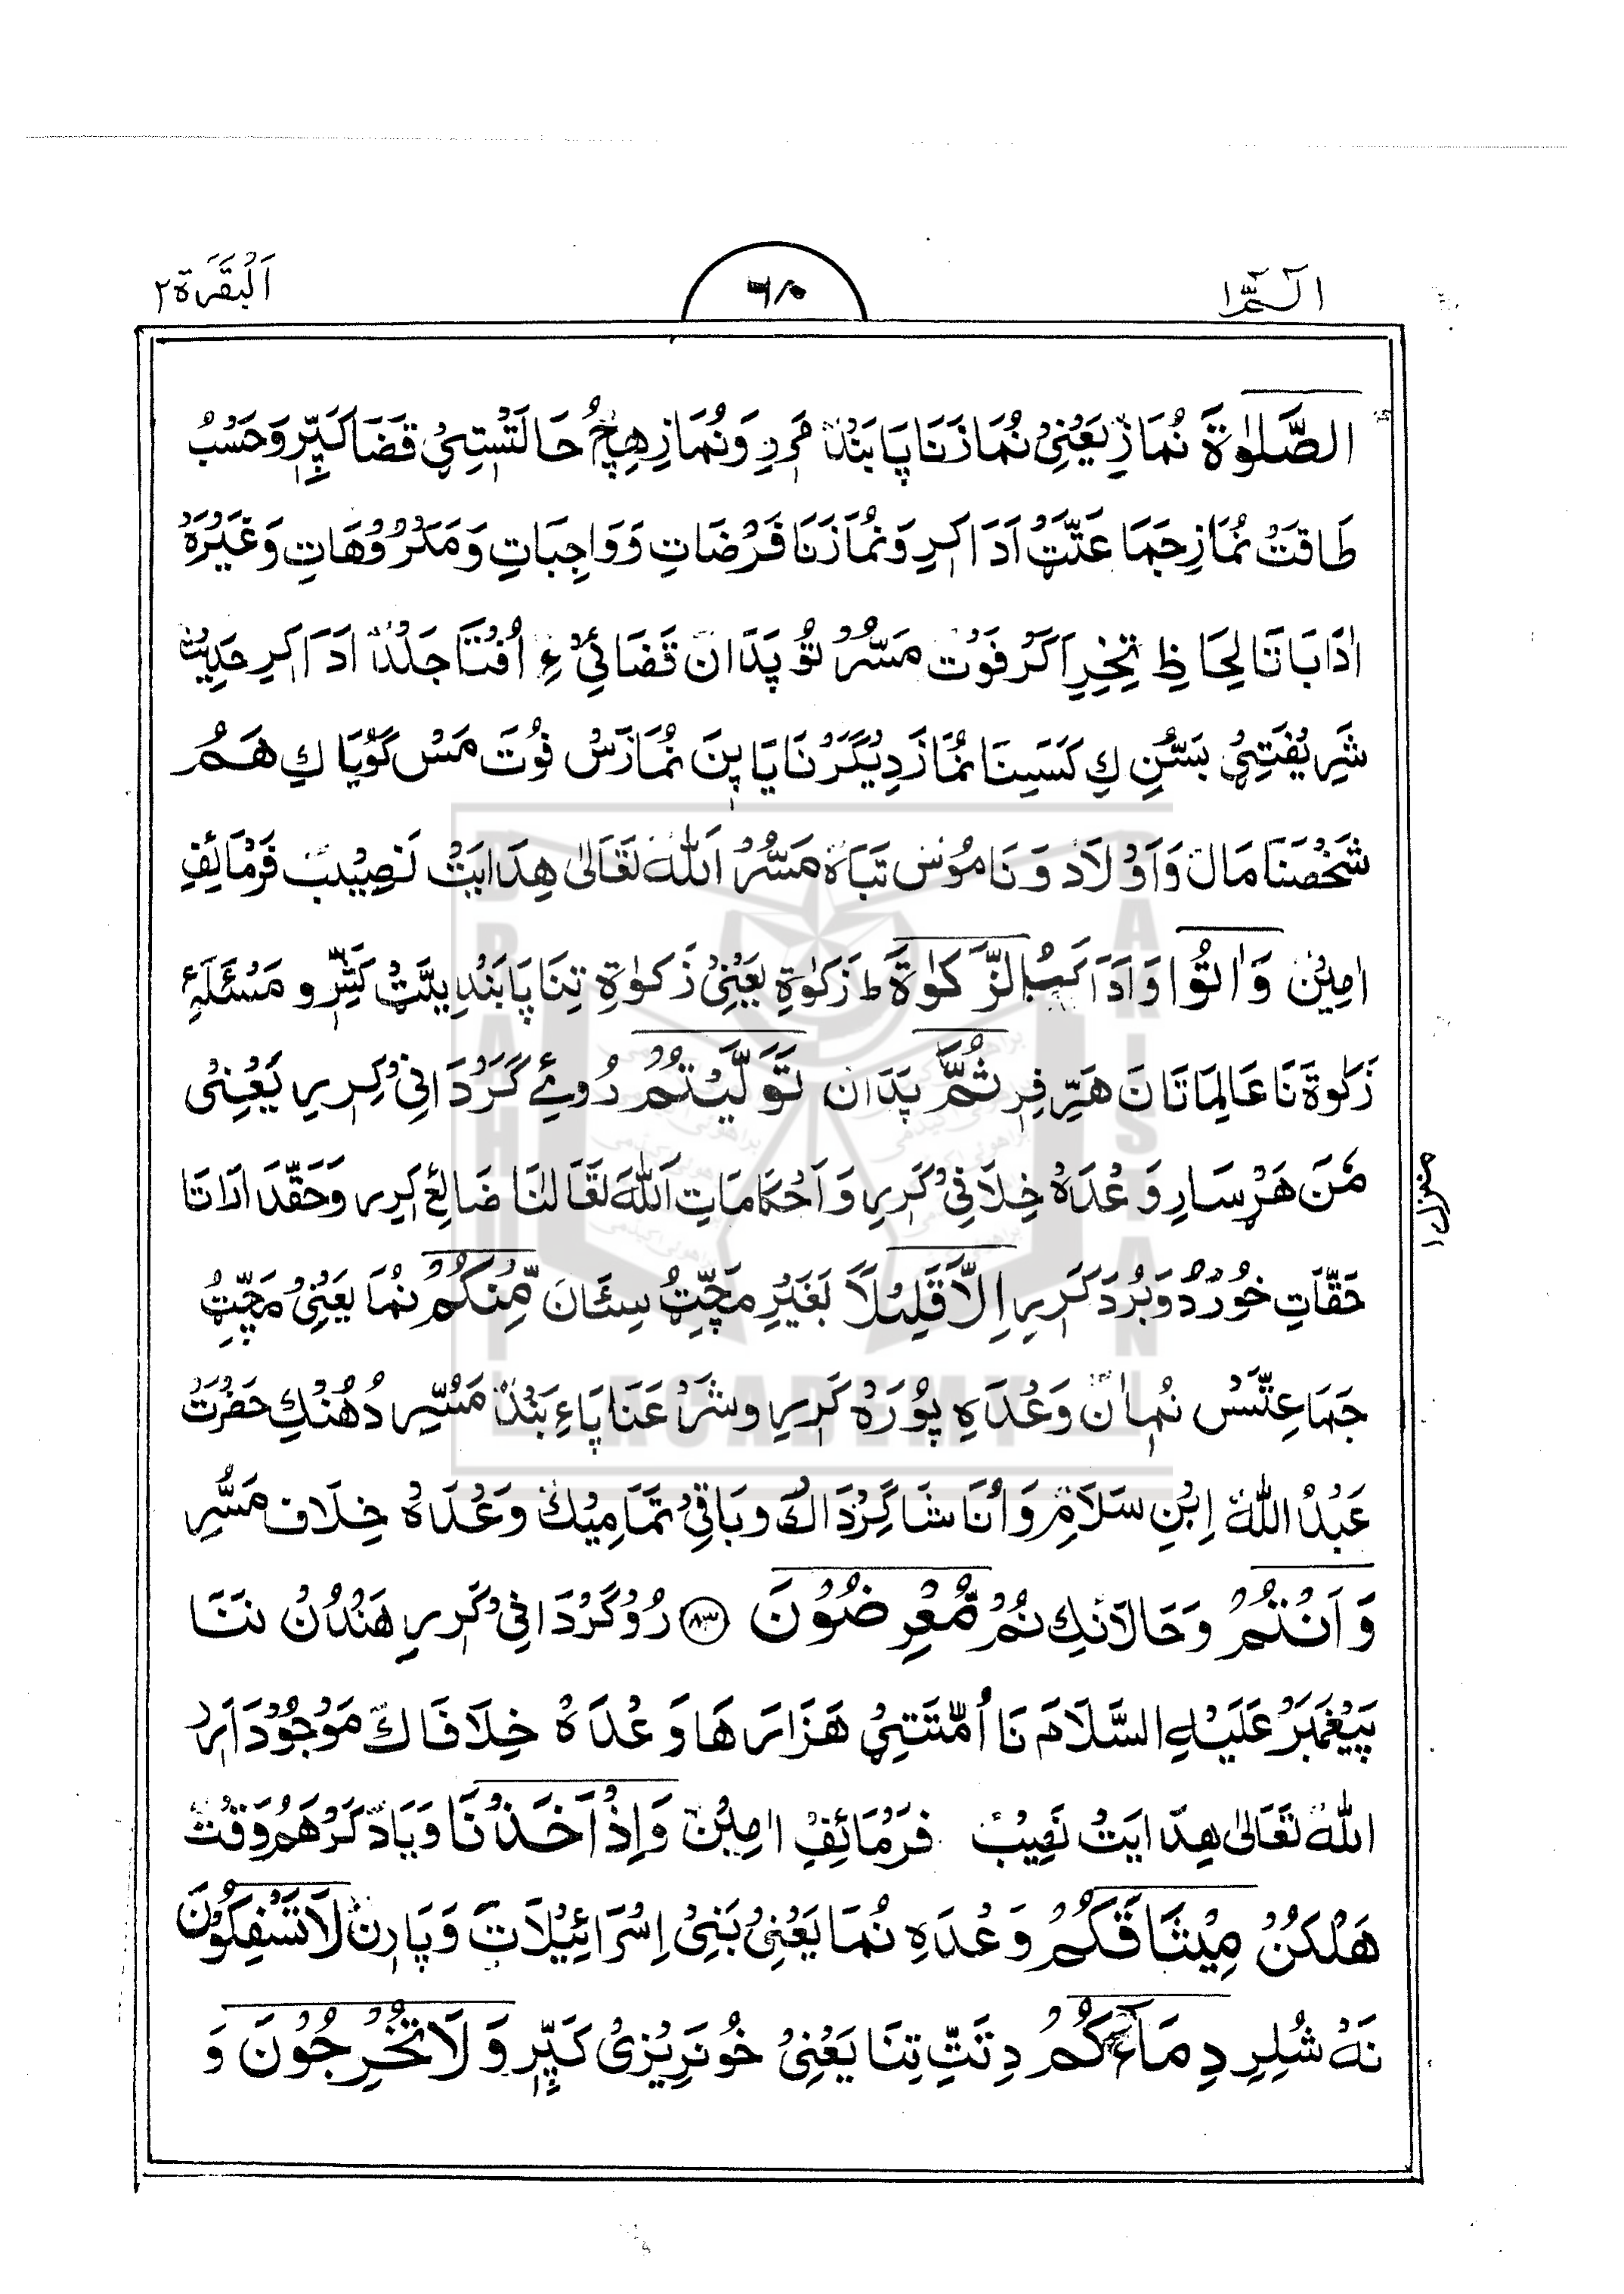 الٓمّٓ ١
٦٨
اَلْبَقَرَة ٢
الصَّلٰوةَ نُمَازِ يَعْنِیْ نُمَازَنَا پَابَنْدْ مَرِرِ وَ نُمَازِ هِچُ حَالَتَسْتِیْ قَضَا كَپِّرِ وَحَسْبُ
طَاقَتْ نُمَازِ جَمَاعَتَّتْ اَدَا كَرِ وَ نُمَازَنَا فَرْضَاتِ وَ وَاجِبَاتِ وَ مَكْرُوْهَاتِ وَ غَيْرَهْ
اَدَابَاتَا لِحَاظِ تِخِرِ اَگَرْ فَوْت مَسُّرْ تُوْ پَدَانْ قَضَائِیْ ءِ اُفْتَا جَلْدْ اَدَا كَرِ حَدِيْث
شَرِيْفَتِیْ بَسُّنِ كِ كَسَسِنَا نُمَازَ دِيْگَرْنَا يَا پِنَ نُمَازَسْ فُوْتَ مَسْ گُوْيَا كِ هَمُ
شَخْصَنَا مَال وَ اَوْلَاد وَ نَامُوْس تَبَاه مَسُّرْ اَللّٰه تَعَالٰی هِدَايَتْ نَصِيْبْ فَرْمَائِفِ
اٰمِيْنْ وَاٰتُوا وَ اَدَا كَبُ الزَّكٰوةَ ط زَكٰوةِ يَعْنِیْ زَكٰوةِ تِنَا پَابَنْدِيَّتْ كَشِّرِ وَ مَسْئَلَہِ
زَكٰوةَ نَا عَالِمَاتَان هَرِّفِرِ ثُمَّ پَدَان تَوَلَّيْتُمْ رُوئےِ گَرْدَانِیْ كِرِرِ يَعْنِیْ
مَنَ هَرْسَارِ وَعْدَهْ خِلَافِیْ كَرِرِ وَ اَحْكَامَاتِ اَللّٰهَ تَعَالٰنَا ضَائِعْ كَرِرِ وَ حَقْدَادَاتَا
حَقَّاتِ خُوْرْدُ وَ بُرْدَ كَرِرِ اِلَّا قَلِيْلًا بَغَيْرِ مَچِّتْ سِئَان مِّنْكُمْ نُمَا يَعْنِیْ مَچِّتْ
جَمَاعِتَّسْ نُمَان وَعْدَهِ پُوْرَهْ كَرِرِ وَ شَرْعَنَا پَاءِ بَنْدْ مَسُّرِ دُهُنْكِ حَضْرَتْ
عَبْدُ اللّٰه اِبْنِ سَلَامِ وَ اُنَا شَاگِرْدَاكْ وَ بَاقِیْ تَمَامِيْك وَعْدَهْ خِلَاف مَسُّرِ
وَاَنْتُمْ وَحَالَانْكِ نُمْ مُّعْرِضُوْنَ ۸۳ رُوْگَرْدَانِیْ كَرِرِ هَنْدُنْ نَنَا
پَيْغَمْبَرْ عَلَيْهِ السَّلَامَ نَا اُمَّتَتِیْ هَزَارهَا وَعْدَهْ خِلَافَاك مَوْجُوْدَ اَرِرْ
اللّٰه تَعَالٰی هِدَايَتْ نَصِيْبْ فَرْمَائِفِ اٰمِيْنْ وَاِذْ اَخَذْنَا وَ يَاد كَرْ هَمُوَقْتْ
هَلْكُنْ مِيْثَاقَكُمْ وَعْدَهِ نُمَا يَعْنِیْ بَنِیْ اِسْرَائِيْلَاتَ وَ پَارِنْ لَا تَسْفِكُوْنَ
نَهْ شُلِرِ دِمَاءَكُمْ دِتَتِّ تِنَا يَعْنِیْ خُوْنَرِيْزِیْ كَپِّرِ وَلَا تُخْرِجُوْنَ وَ
منزل ١